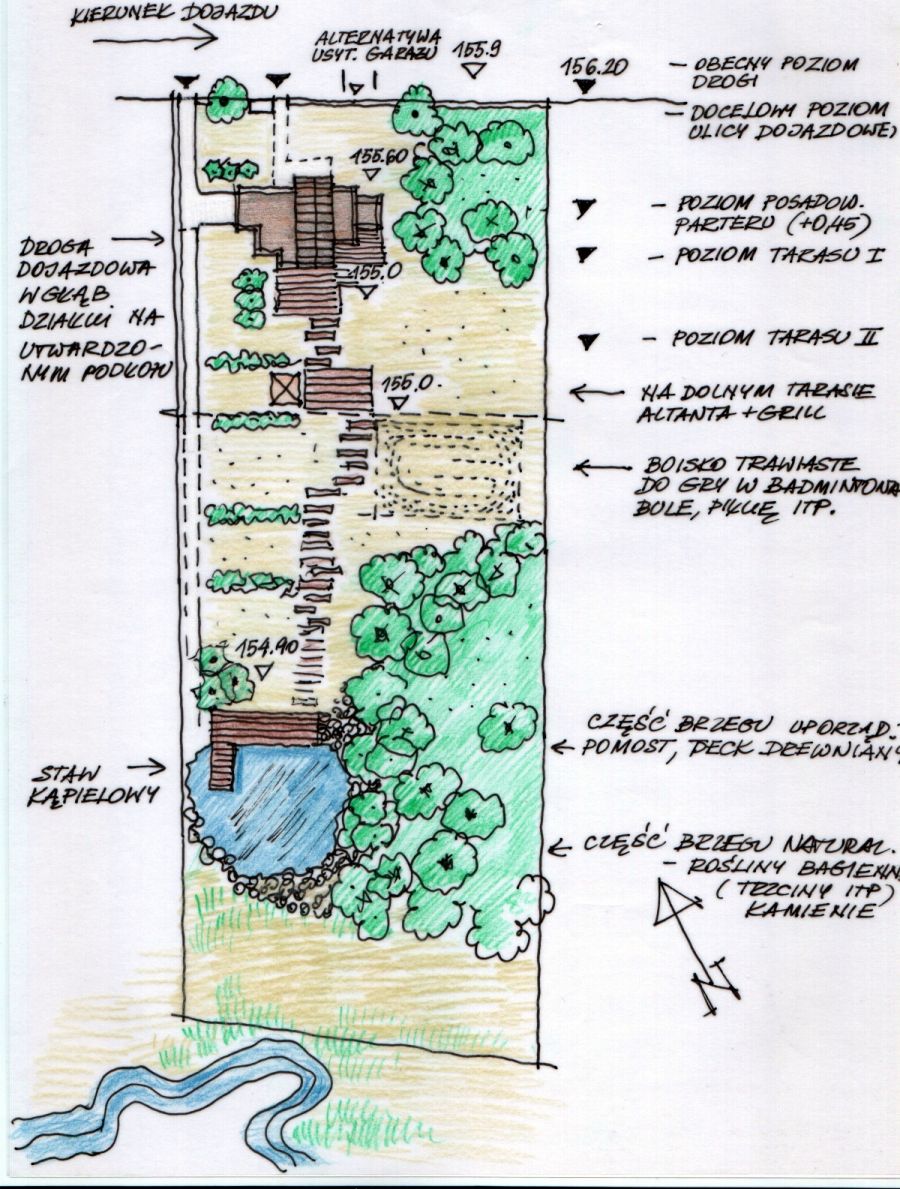 KIERUNEK DOJAZDU
ALTERNATYWA
USYT. GARAŻU
155.9
156.20
- OBECNY POZIOM
DROGI
- DOCELOWY POZIOM
ULICY DOJAZDOWEJ
155.60
- POZIOM POSADOW.
PARTERU (+0,45)
- POZIOM TARASU I
DROGA
DOJAZDOWA
W GŁĄB
DZIAŁKI NA
UTWARDZO-
NYM PODŁOŻU
155.0
- POZIOM TARASU II
155.0.
NA DOLNYM TARASIE
ALTANTA + GRILL
BOISKO TRAWIASTE
DO GRY W BADMINTONA
BULE, PIŁKĘ ITP.
154.90
CZĘŚĆ BRZEGU UPORZĄD.
POMOST, DECK DREWNIANY
STAW
KĄPIELOWY
CZĘŚĆ BRZEGU NATURAL.
- ROŚLINY BAGIENN
(TRZCINY ITP)
KAMIENIE
N